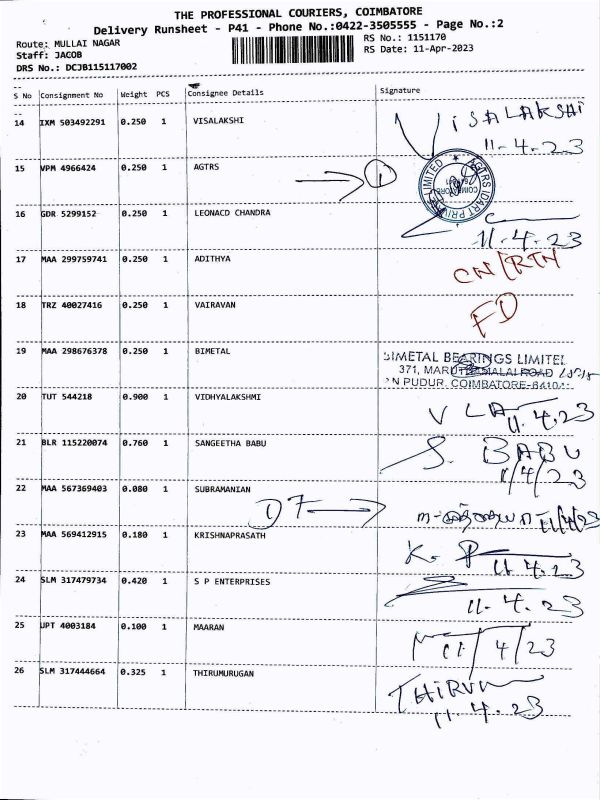 THE PROFESSIONAL COURIERS, COIMBATORE
Delivery Runsheet - P41 - Phone No.:0422-3505555 - Page No.:2
Route: MULLAI NAGAR
RS No.: 1151170
Staff: JACOB
RS Date: 11-Apr-2023
DRS No.: DCJB115117002
S No Consignment No Weight PCS Consignee Details Signature
14 IXM 503492291 0.250 1 VISALAKSHI VISALAKSHI
11.4.23
15 VPM 4966424 0.250 1 AGTRS 1
AGTRS IDART PRIVATE LIMITED
COIMBATORE
16 GDR 5299152 0.250 1 LEONACD CHANDRA
11.4.23
17 MAA 299759741 0.250 1 ADITHYA CN/RTN
18 TRZ 40027416 0.250 1 VAIRAVAN FD
19 MAA 298676378 0.250 1 BIMETAL BIMETAL BEARINGS LIMITED
371, MARUTHAMALAI ROAD
N PUDUR, COIMBATORE-
20 TUT 544218 0.900 1 VIDHYALAKSHMI V LA 11.4.23
21 BLR 115220074 0.760 1 SANGEETHA BABU S. BABU
11/4/23
22 MAA 567369403 0.080 1 SUBRAMANIAN 11/4/23
23 MAA 569412915 0.180 1 KRISHNAPRASATH K. P
11.4.23
24 SLM 317479734 0.420 1 S P ENTERPRISES
11.4.23
25 UPT 4003184 0.100 1 MAARAN 11/4/23
26 SLM 317444664 0.325 1 THIRUMURUGAN THIRU
11.4.23